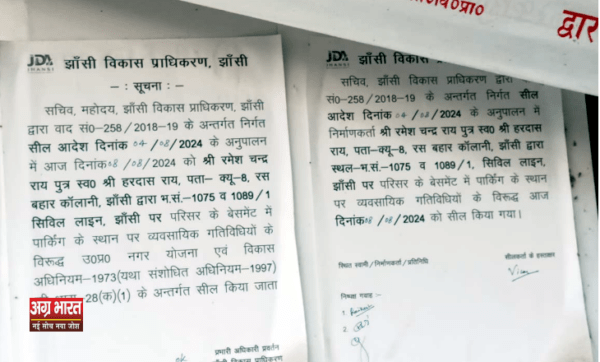 द्वार
JDA
JHANSI
झाँसी विकास प्राधिकरण, झाँसी
- : सूचना : -
सचिव, महोदय, झाँसी विकास प्राधिकरण, झाँसी
द्वारा वाद सं0-258/2018-19 के अन्तर्गत निर्गत
सील आदेश दिनांक 04/08/2024 के अनुपालन
में आज दिनांक 08/08/2024 को श्री रमेश चन्द्र
राय पुत्र स्व0 श्री हरदास राय, पता- क्यू-8, रस
बहार कॉलानी, झाँसी द्वारा भ.सं.-1075 व 1089/1
सिविल लाइन, झाँसी पर परिसर के बेसमेंट में
पार्किंग के स्थान पर व्यवसायिक गतिविधियों के
विरूद्ध उ0प्र0 नगर योजना एवं विकास
अधिनियम-1973(यथा संशोधित अधिनियम-1997)
28(क)(1) के अन्तर्गत सील किया जाता
प्रभारी अधिकारी प्रवर्तन
झाँसी विकास प्राधिकरण
JDA
JHANSI
झाँसी विकास प्राधिकरण, झाँसी
सचिव, झाँसी विकास प्राधिकरण द्वारा
सं0-258/2018-19 के अन्तर्गत निर्गत सील
आदेश दिनांक 04/08/2024 के अनुपालन में
निर्माणकर्ता श्री रमेश चन्द्र राय पुत्र स्व0 श्री हरदास
राय, पता-क्यू-8, रस बहार कॉलानी, झाँसी द्वारा
स्थल-भ.सं.-1075 व 1089/1, सिविल लाइन,
झाँसी पर परिसर के बेसमेंट में पार्किंग के स्थान
पर व्यवसायिक गतिविधियों के विरूद्ध आज
दिनांक 08/08/2024 को सील किया गया।
स्थित स्वामी/निर्माणकर्ता/प्रतिनिधि
सीलकर्ता के हस्ताक्षर
निष्पक्ष गवाह :-
1.
2.
अग्र भारत
नई सोच नया जोश